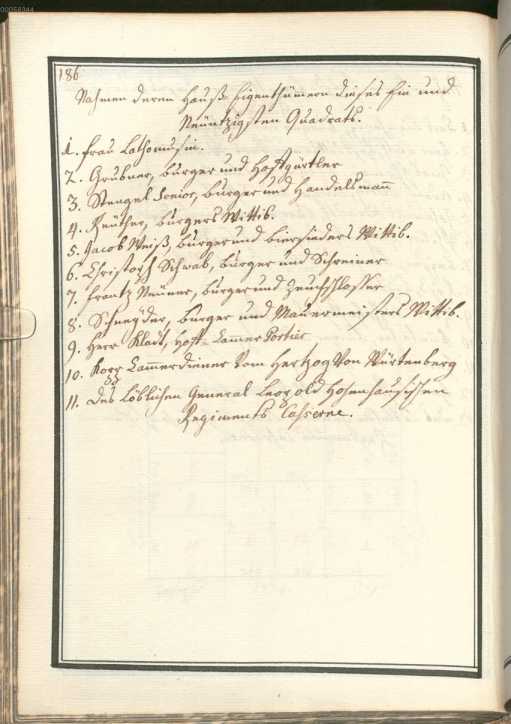 00056344
186
Nahmen deren Hauß Eigenthümern dieses Ein und
Neüntzigsten Quadrats.
1. Frau Lathomusin.
2. Grubner, burger und Hoffgürtler
3. Stengel Senior, burger und Handelsmann
4. Reüther, burgers Wittib.
5. Jacob Weiß, burger und biersieders Wittib.
6. Christoph Schwab, burger und Schreiner
7. Frantz Neüner, burger und Zeüchschlosser
8. Schneyder, burger und Mauermeisters Wittib.
9. Herr Kladt, Hoff-Camer Portier
10. Korr Cammerdiener Vom Hertzog Von Würtenberg
11. des Löblichen General Leopold Hohenhausischen
Regiments Casserne.